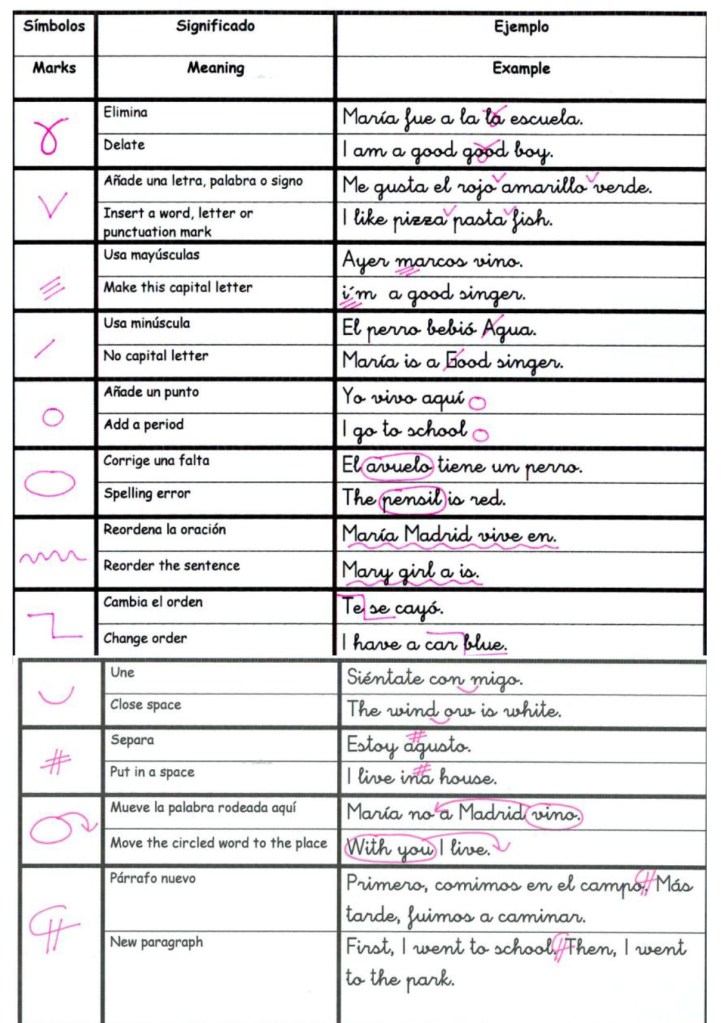 Símbolos Significado Ejemplo
Marks Meaning Example
Elimina María fue a la la escuela.
Delate I am a good good boy.
Añade una letra, palabra o signo Me gusta el rojo amarillo verde.
Insert a word, letter or I like pizza pasta fish.
punctuation mark
Usa mayúsculas Ayer marcos vino.
Make this capital letter i´m a good singer.
Usa minúscula El perro bebió Agua.
No capital letter María is a Good singer.
Añade un punto Yo vivo aquí
Add a period I go to school
Corrige una falta El avuelo tiene un perro.
Spelling error The pensil is red.
Reordena la oración María Madrid vive en.
Reorder the sentence Mary girl a is.
Cambia el orden Te se cayó.
Change order I have a car blue.
Une Siéntate con migo.
Close space The wind ow is white.
Separa Estoy agusto.
Put in a space I live ina house.
Mueve la palabra rodeada aquí María no a Madrid vino.
Move the circled word to the place With you I live.
Párrafo nuevo Primero, comimos en el campo. Más
tarde, fuimos a caminar.
New paragraph First, I went to school. Then, I went
to the park.